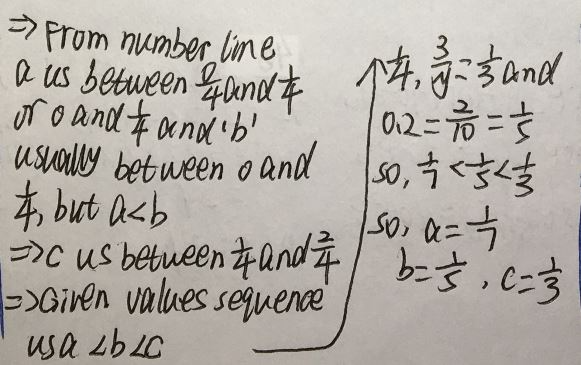 ⇒ From number line
a us between 0/4 and 1/4
or 0 and 1/4 and 'b'
usually between 0 and
1/4, but a<b
⇒ c us between 1/4 and 2/4
⇒ Given values sequence
us a<b<c
1/7, 3/9=1/3 and
0.2=2/10=1/5
so, 1/7<1/5<1/3
so, a=1/7
b=1/5, c=1/3